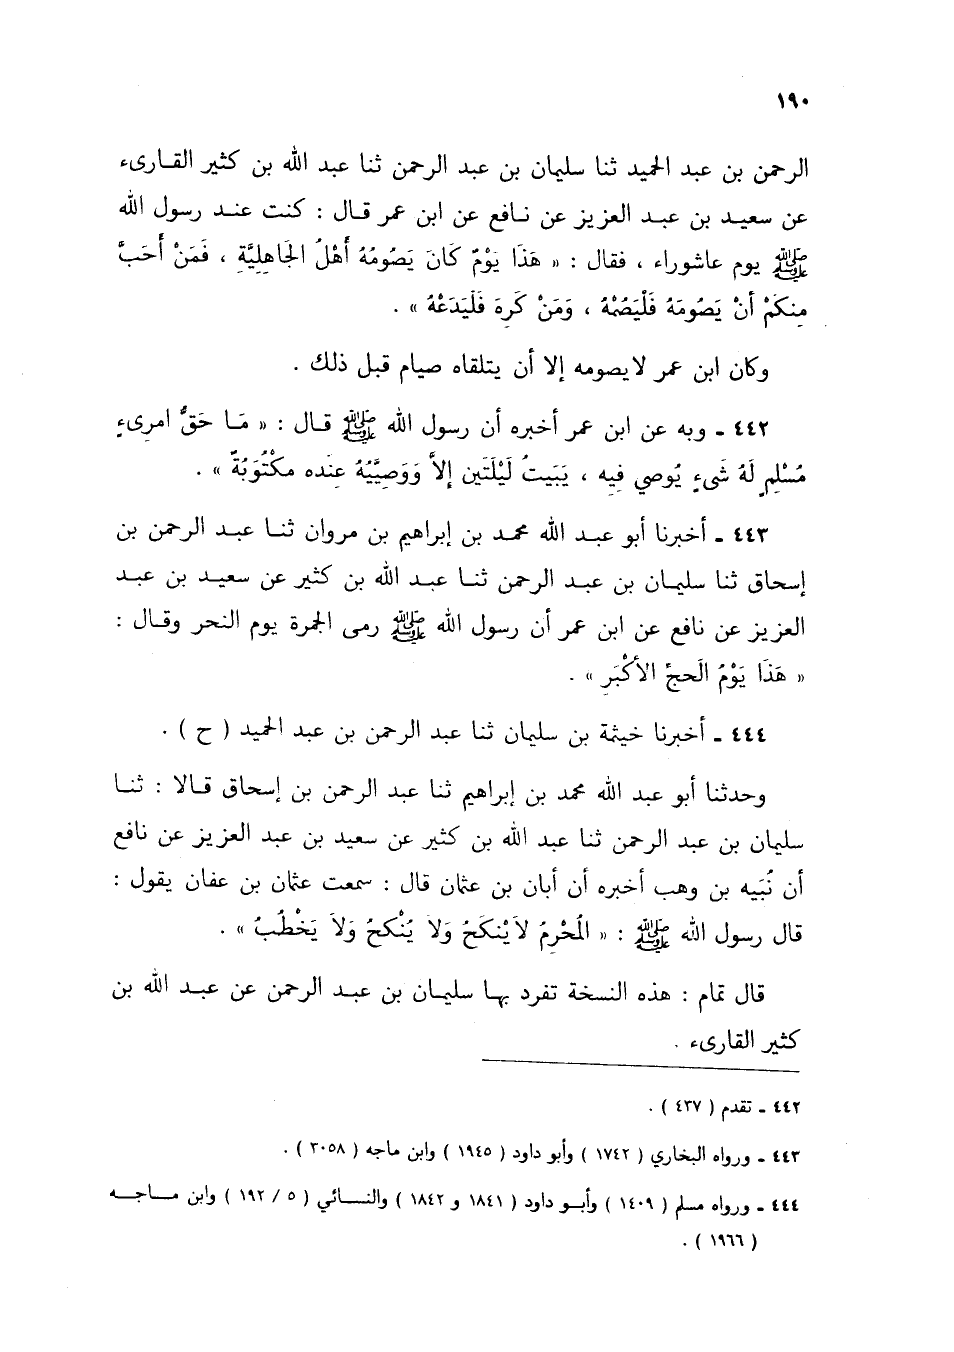 ١٩٠
الرحمن بن عبد الحميد ثنا سليمان بن عبد الرحمن ثنا عبد الله بن كثير القارىء
عن سعيد بن عبد العزيز عن نافع عن ابن عمر قال : كنت عند رسول الله
ﷺ يوم عاشوراء ، فقال : « هَذَا يَوْمٌ كَانَ يَصُومُهُ أَهْلُ الجَاهِلِيَّةِ ، فَمَنْ أَحَبَّ
مِنكَمْ أَنْ يَصُومَهُ فَلْيَصُمْهُ ، وَمَنْ كَرِهَ فَلْيَدَعْهُ » .
وكان ابن عمر لا يصومه إلا أن يتلقاه صيام قبل ذلك .
٤٤٢ ـ وبه عن ابن عمر أخبره أن رسول الله ﷺ قال : « مَا حَقُّ امرِىءٍ
مُسْلِمٍ لَهُ شَىءٍ يُوصِي فِيهِ ، يَبَيتُ لَيْلَتَينِ إِلاَّ وَوَصِيَّيُهُ عِنده مكْتُوبَةٌ » .
٤٤٣ ـ أخبرنا أبو عبد الله محمد بن إبراهيم بن مروان ثنا عبد الرحمن بن
إسحاق ثنا سليمان بن عبد الرحمن ثنا عبد الله بن كثير عن سعيد بن عبد
العزيز عن نافع عن ابن عمر أن رسول الله ﷺ رمى الجمرة يوم النحر وقال :
« هَذَا يَوْمُ الَحجِّ الأَكْبَرِ » .
٤٤٤ ـ أخبرنا خيثمة بن سليمان ثنا عبد الرحمن بن عبد الحميد ( ح ) .
وحدثنا أبو عبد الله محمد بن إبراهيم ثنا عبد الرحمن بن إسحاق قالا : ثنا
سليمان بن عبد الرحمن ثنا عبد الله بن كثير عن سعيد بن عبد العزيز عن نافع
أن نُبَيه بن وهب أخبره أن أبان بن عثمان قال : سمعت عثمان بن عفان يقول :
قال رسول الله ﷺ : « الُمْحْرِمُ لاَيَنْكَحُ وَلاَ يُنْكحُ وَلاَ يَخْطُبُ » .
قال تمام : هذه النسخة تفرد بها سليمان بن عبد الرحمن عن عبد الله بن
كثير القارىء .
٤٤٢ ـ تقدم ( ٤٣٧ ) .
٤٤٣ ـ ورواه البخاري ( ١٧٤٢ ) وأبو داود ( ١٩٤٥ ) وابن ماجه ( ٣٠٥٨ ) .
٤٤٤ ـ ورواه مسلم ( ١٤٠٩ ) وأبو داود ( ١٨٤١ و ١٨٤٢ ) والنسائي ( ٥ / ١٩٢ ) وابن ماجه
( ١٩٦٦ ) .